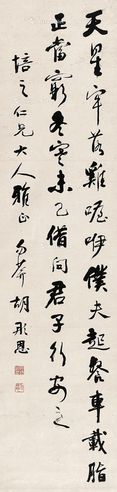 天星牢落雞喔咿僕夫起餐車載脂
正當窮冬寒未已借問君子行安之
培之仁兄大人雅正 胡彤恩